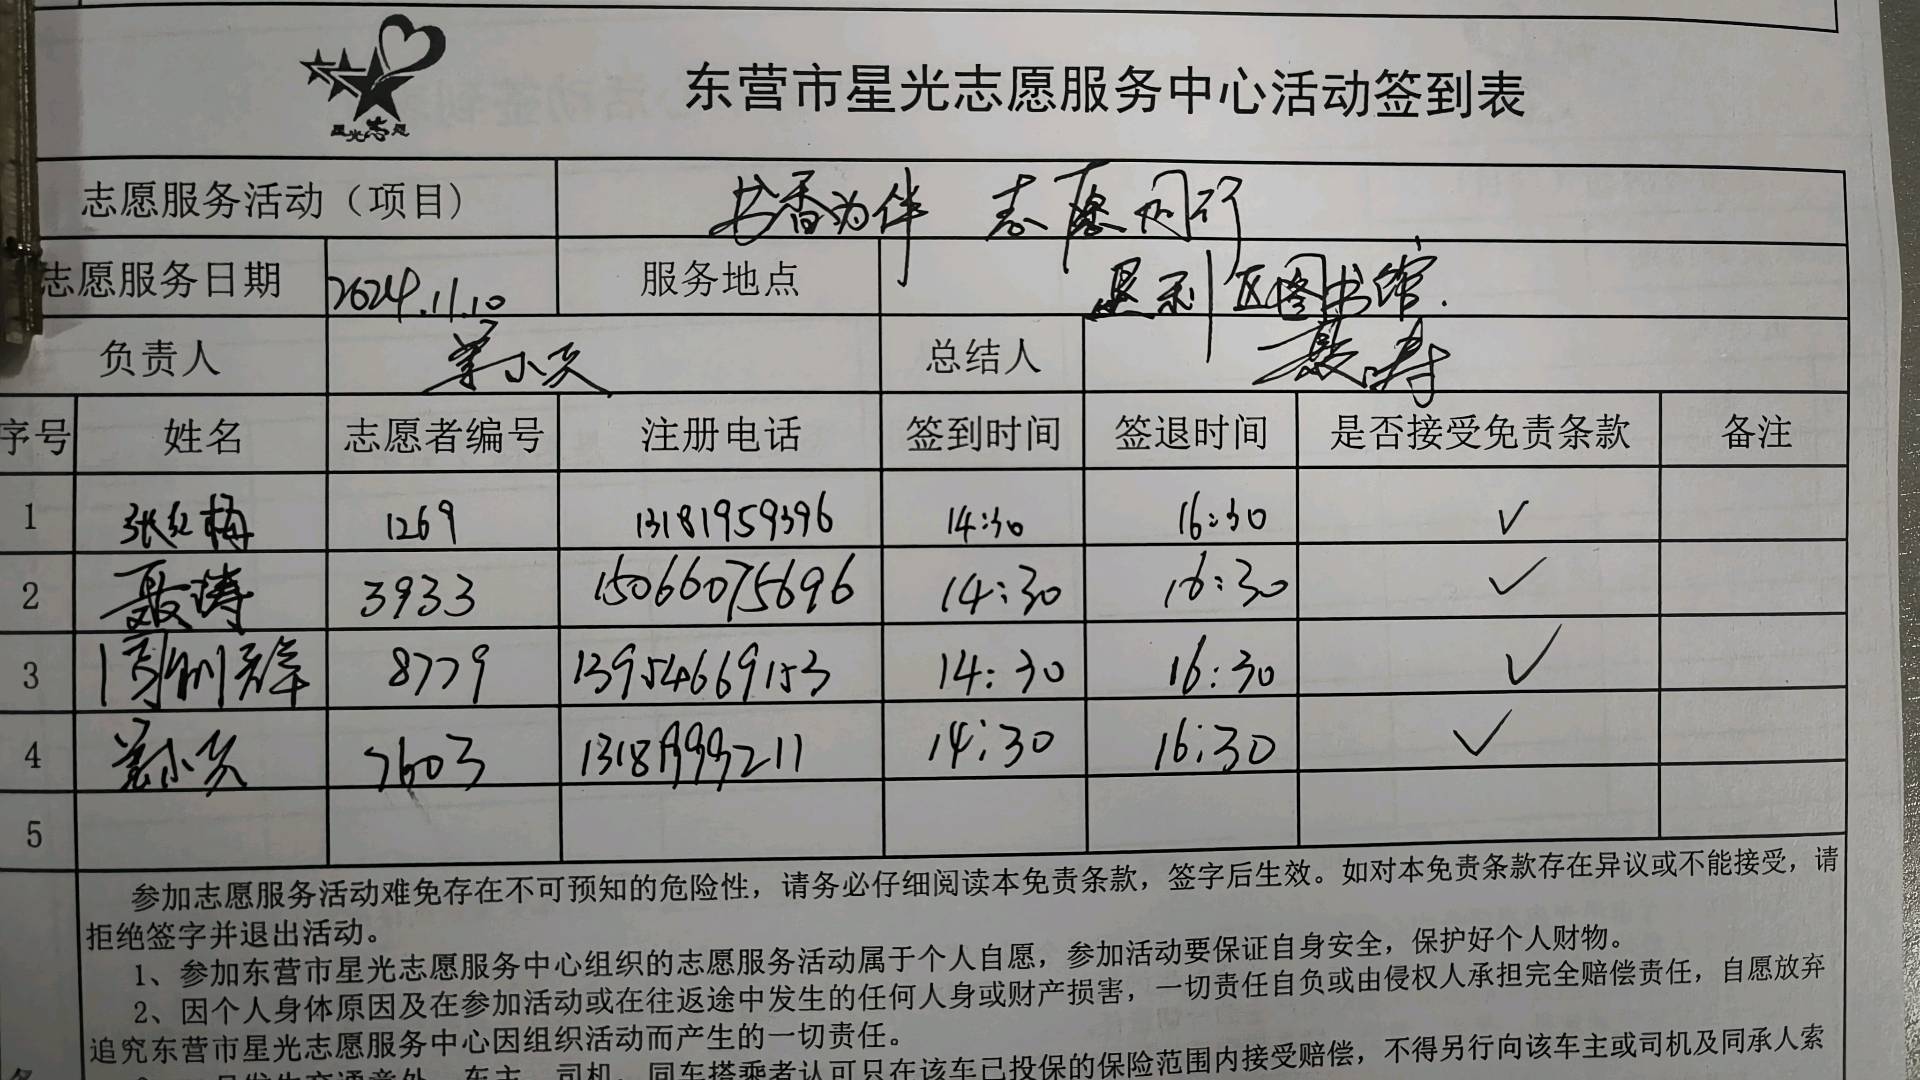 星光志愿
东营市星光志愿服务中心活动签到表
志愿服务活动（项目） 书香为伴 志愿同行
志愿服务日期 2024.11.10 服务地点 垦利区图书馆.
负责人 姜小灵 总结人 聂涛
序号 姓名 志愿者编号 注册电话 签到时间 签退时间 是否接受免责条款 备注
1 张红梅 1269 13181959396 14:30 16:30 ✓
2 聂涛 3933 15066075696 14:30 16:30 ✓
3 8779 13954669153 14:30 16:30 ✓
4 姜小灵 7603 14:30 16:30 ✓
5
参加志愿服务活动难免存在不可预知的危险性，请务必仔细阅读本免责条款，签字后生效。如对本免责条款存在异议或不能接受，请
拒绝签字并退出活动。
1、参加东营市星光志愿服务中心组织的志愿服务活动属于个人自愿，参加活动要保证自身安全，保护好个人财物。
2、因个人身体原因及在参加活动或在往返途中发生的任何人身或财产损害，一切责任自负或由侵权人承担完全赔偿责任，自愿放弃
追究东营市星光志愿服务中心因组织活动而产生的一切责任。
发生交通意外，车主、司机、同车搭乘者认可只在该车已投保的保险范围内接受赔偿，不得另行向该车主或司机及同承人索